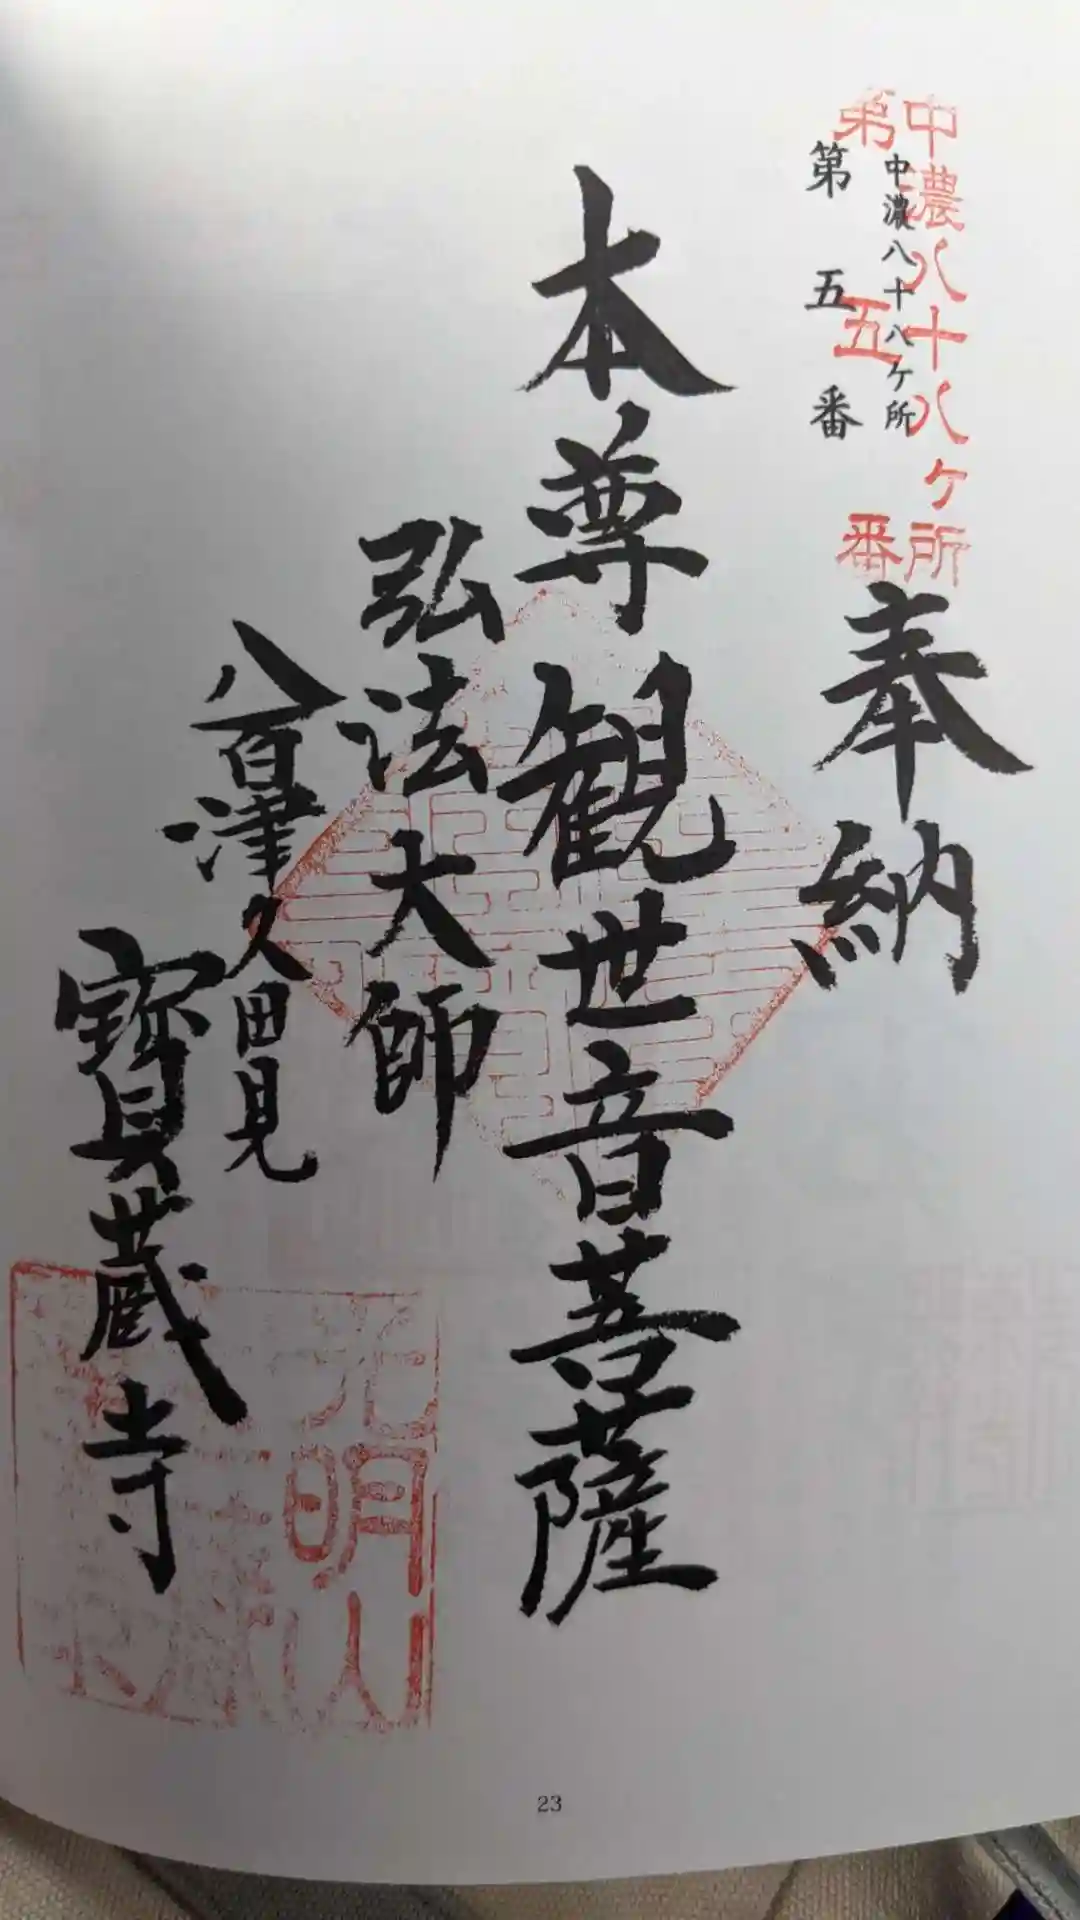 中濃八十八ケ所
第五番
中濃八十八ケ所
第五番
奉納
本尊観世音菩薩
弘法大師
八百津久田見
寳蔵寺
光明山
23